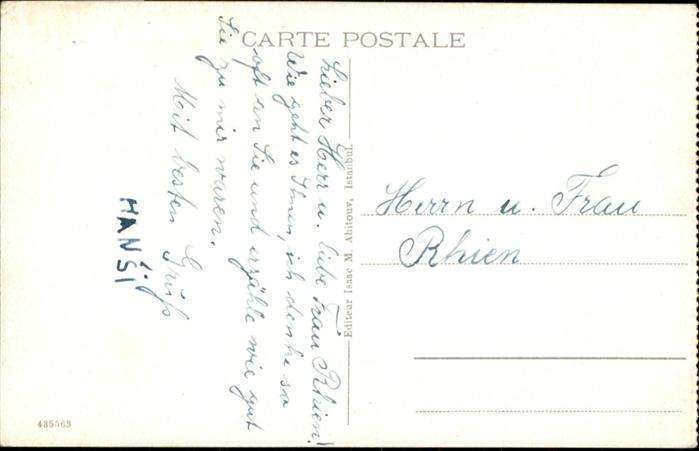 CARTE POSTALE
Lieber Herr u. liebe Frau Rhien!
Wie geht es Ihnen, ich denke so
oft an Sie und erzähle wie gut
Sie zu mir waren.
Mit besten Grüß
HANSI
Editeur Isaac M. Ahitouv, Istanbul.
Herrn u. Frau
Rhien
435563